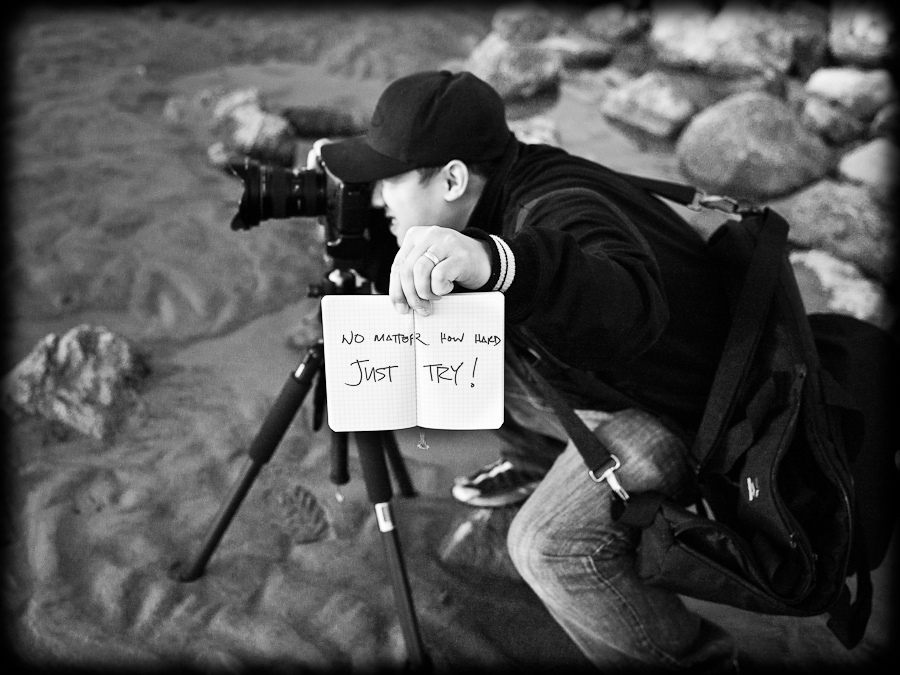 NO MATTER HOW HARD
JUST TRY!